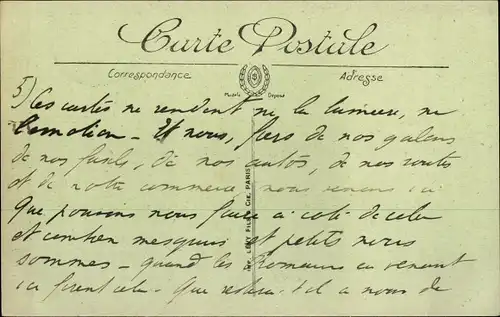 Carte Postale
Correspondance
Adresse
Modèle Déposé
5) Ces cartes ne rendent ni la lumière, ni
l'émotion - Et nous, fiers de nos galons
de nos fusils, de nos autos, de nos routes
et de notre commerce nous venons ici
Que pouvons nous faire à côté de cela
et combien mesquins et petits nous
sommes - quand les Romains en venant
ici firent cela - Que restera-t-il a nous de
IMP. LÉVY FILS & CIE, PARIS